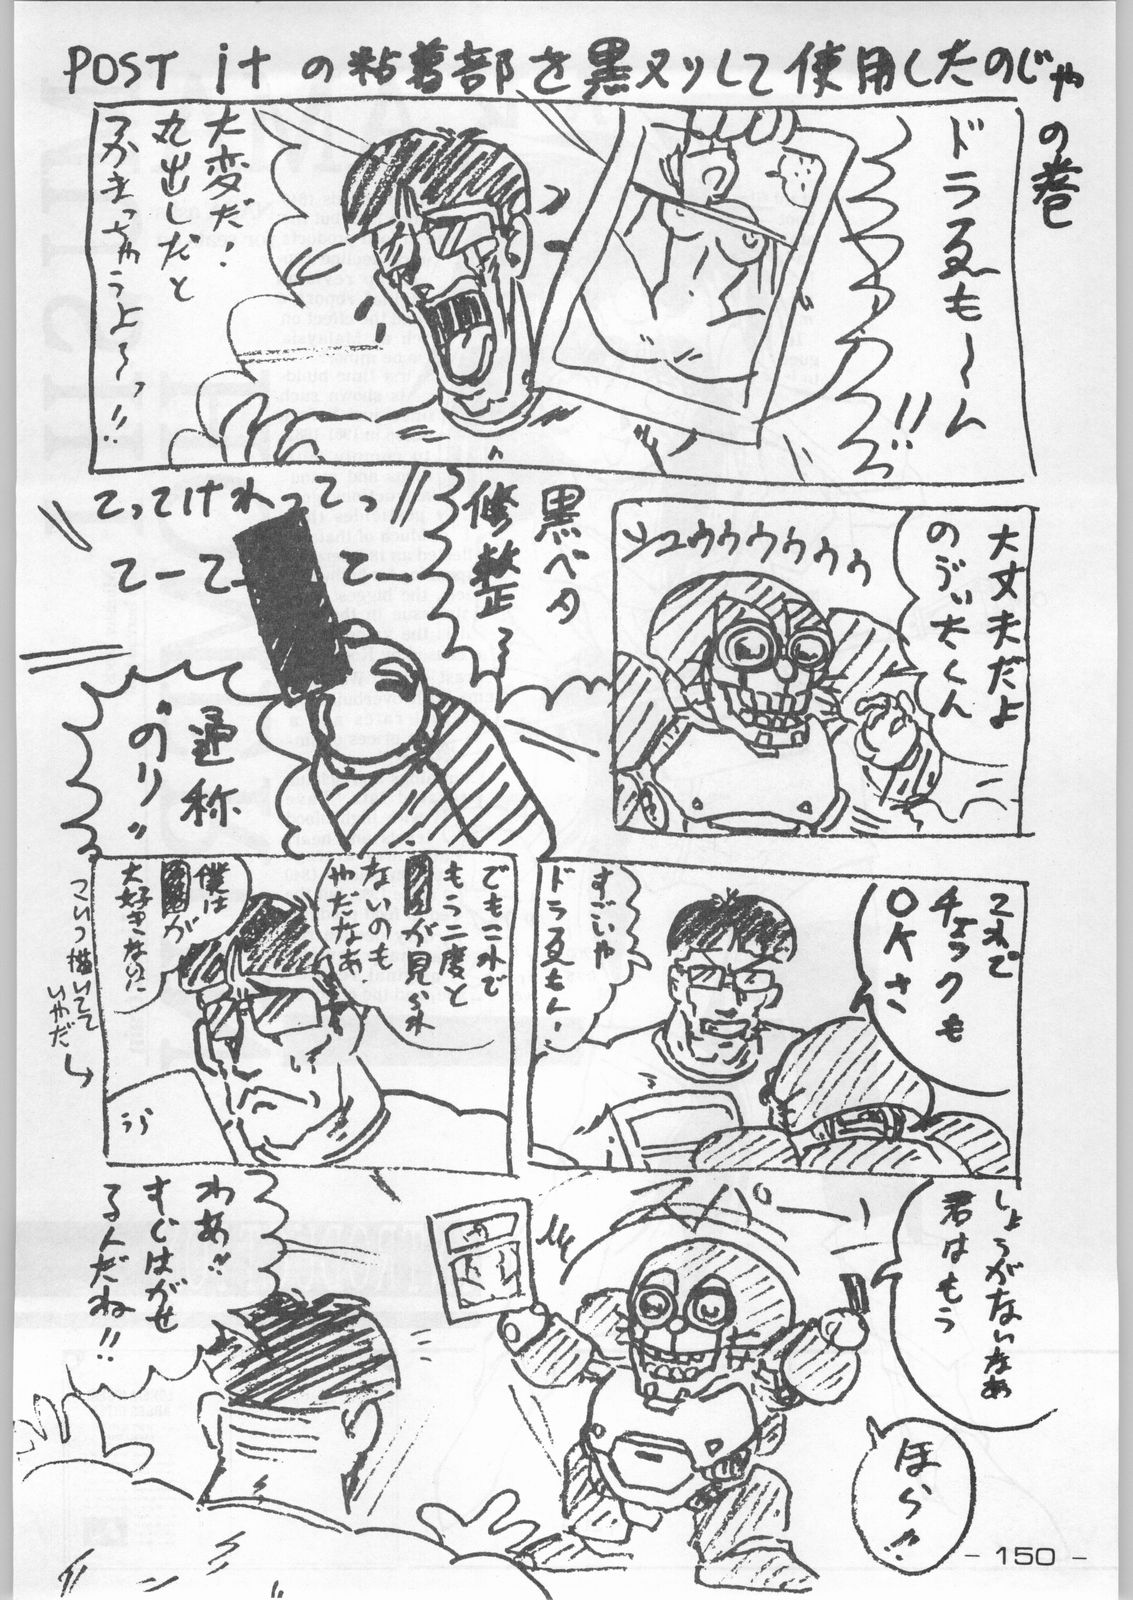 POST itの粘着部を黒ヌリして使用したのじゃ
の巻
ドラゑも〜ん
!!
大変だ!
丸出しだと
つかまっちゃうよ〜っ!!
大丈夫だよ
のび太くん
シュゥゥゥゥゥゥ
黒ベタ
修整〜
てってけれってっ
てーてーてー
通称
“のり”
これで
チェックも
OKさ
すごいや
ドラゑもん!
でもこれで
もう二度と
が見られ
ないのも
やだなぁ
僕は
が
大好きなのに
こいつ描いてて
いやだ
しょうがないなぁ
君はもう
ほら!!
スパー
わあ!!
すぐはがせ
るんだね!!
- 150 -